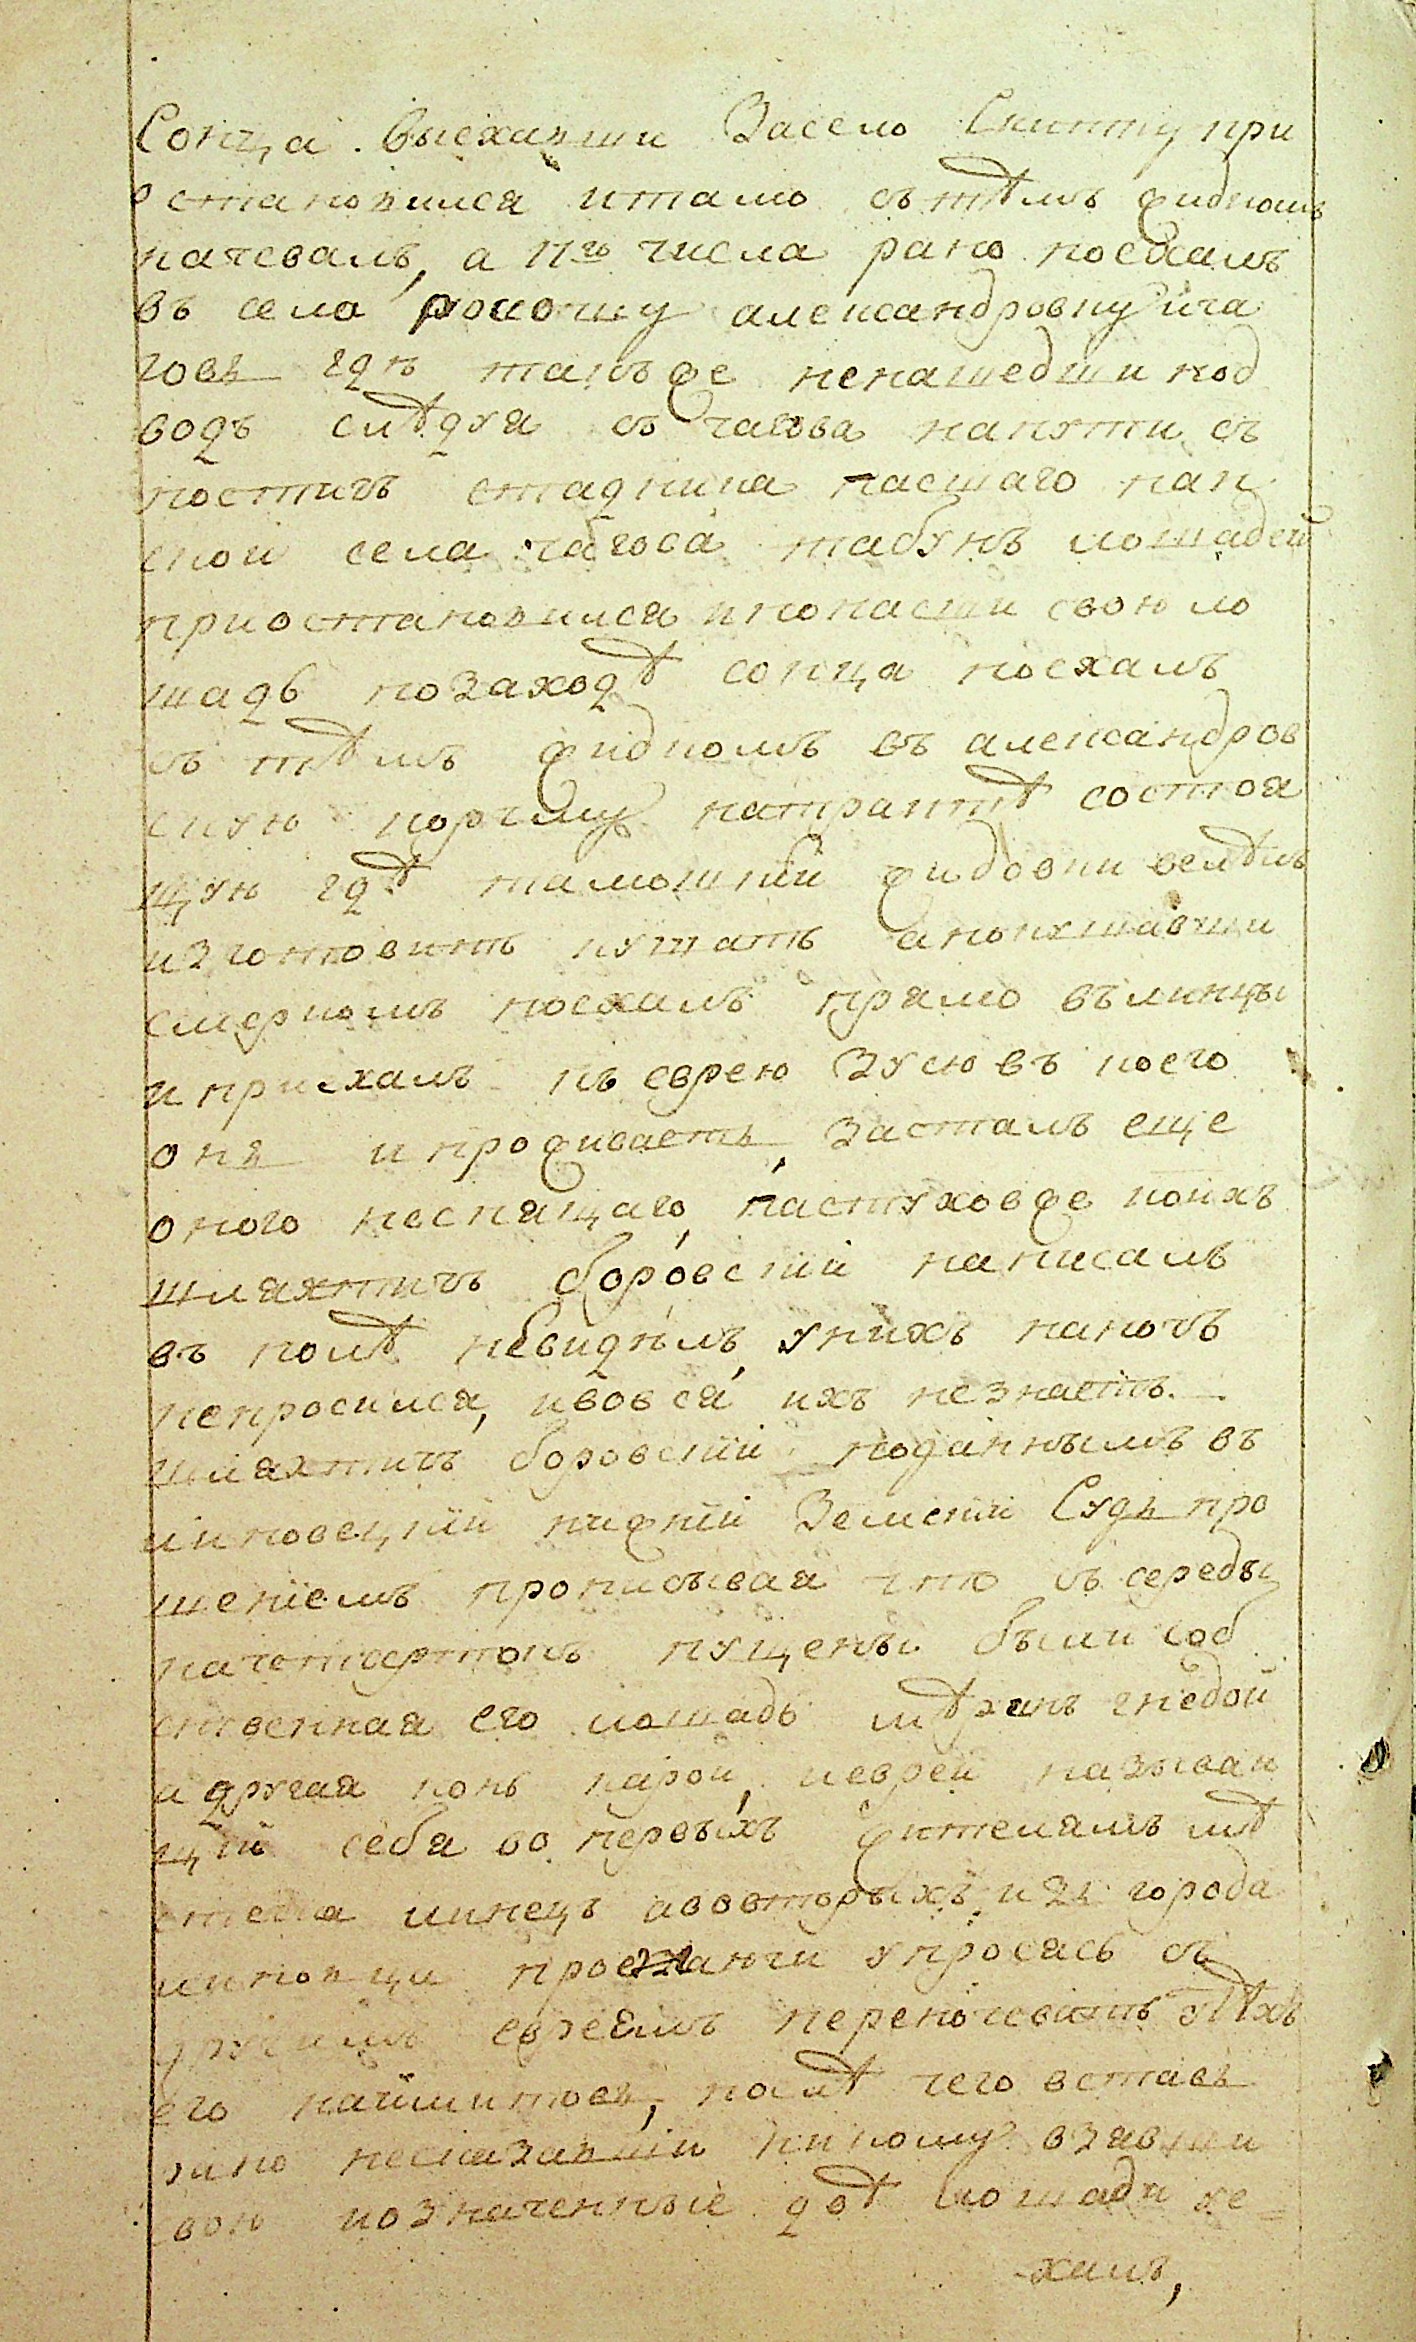 Сонца. Выехавши Засело Скитку при
остановился итамо съ тѣмъ жидкомъ
начевалъ, а 17го числа рано поехалъ
въ села рокочну александровку ича
говъ гдѣ такъ же ненашедши под
водъ слѣдуя съ чагова напути съ
постичъ стадника пасшаго пан
ской села чагова табунъ лошадей
приостановился ипопасши свою ло
шадь позаходѣ сонца поехалъ
съ тѣмъ жидкомъ въ александров
скую корчму натрактѣ состоя
щую гдѣ тамошнѣй жидовки велѣлъ
изготовить кушать апокушавши
смеркомъ поехалъ прямо въ линцы
иприехалъ къ еврею Зусю въ коего
онъ ипроживаетъ, Засталъ еще
оного неспящаго, пастуховже коихъ
шляхтичъ боровскій написалъ
въ полѣ невидѣлъ, унихъ наночъ
непросился, ивовся ихъ незнаетъ.
шляхтичъ боровскій поданнымъ въ
липовецкій нижній Земскій Судъ про
шеніемъ прописывая что съ середы
начетвертокъ пущены были соб
ственная его лошадь мѣринъ гнедой
адругая конь карой, иеврей называю
щій себя во первыхъ жителямъ мѣ
стечка линецъ авовторыхъ изъ города
липовци проезжаючи упросясь съ
другимъ евреемъ переночевать утѣхъ
его наймитовъ, послѣ чего вставъ
рано несказавши никому взявши
свою иозначенные двѣ лошади уе=
халъ,